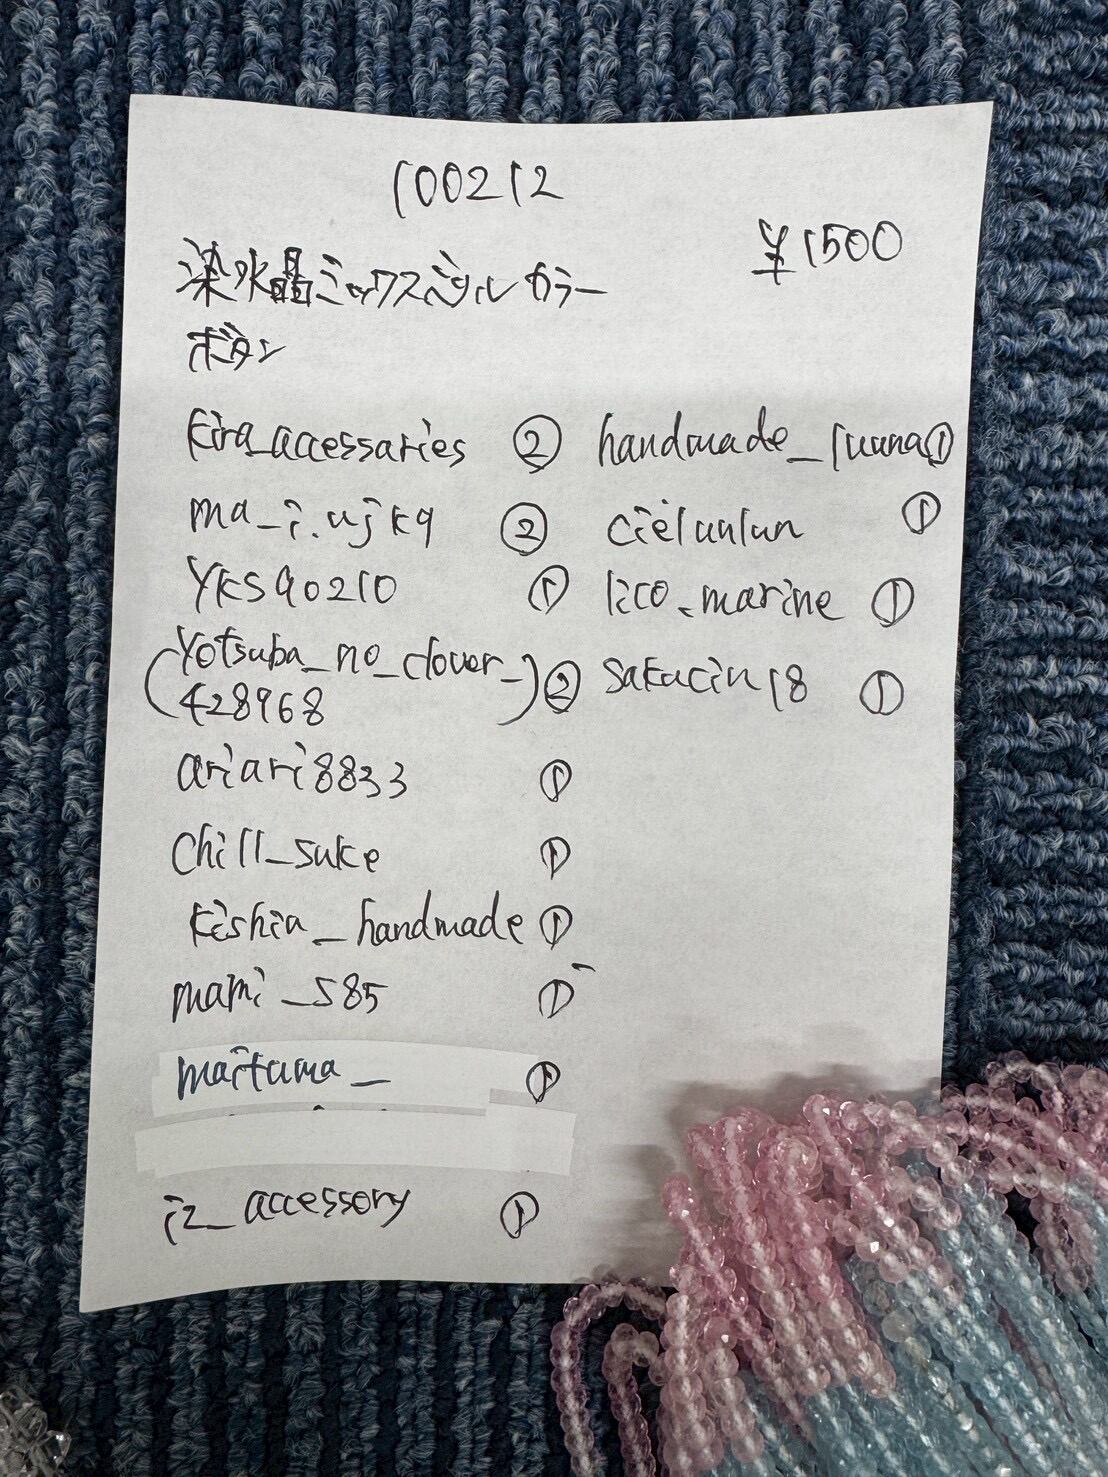 100212
¥1500
染水晶ミックスペールカラー
ボタン
kira_accessaries ②
ma_i.ujkq ②
YKS90210 ①
(Yotsuba_no_clover_
428968) ②
ariari8833 ①
chill_suke ①
kishia_handmade ①
mami_585 ①
maituma_ ①
iz_accessory ①
handmade_luuna ①
cielunlun ①
lico_marine ①
sakucin18 ①